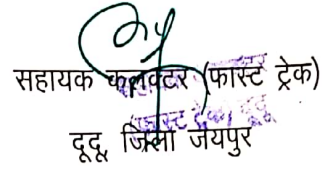 सहायक कलक्टर (फास्ट ट्रेक)
दूदू, जिला जयपुर